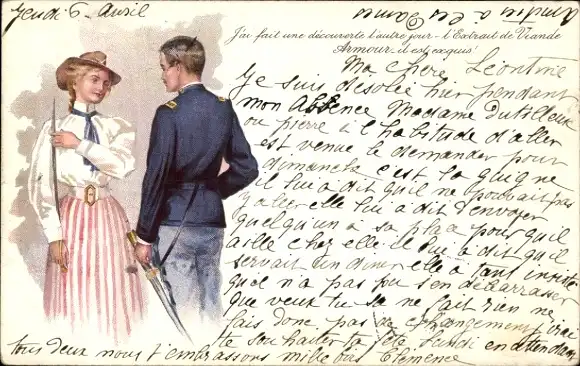 Jeudi 6 Avril
J'ai fait une découverte l'autre jour - l'Extrait de Viande
Armour: il est exquis!
Ma chere Léontine
Je suis desolée hier pendant
mon absence Madame Dutilleux
ou pierre a l'habitude d'aller
est venue le demander pour
dimanche c'est la guigne
il lui a dit qu'il ne pouvait pas
y aller elle lui a dit d'envoyer
quelqu'un a sa place pour qu'il
aille chez elle il lui a dit qu'il
servait un diner elle a tant insisté
qu'el n'a pas pu s'en débarrasser
que veux tu sa ne fait rien ne
fais donc pas de changement j'irai
te souhaiter ta fête Lundi en attendant
tous deux nous t'embrassons mille fois Clémence